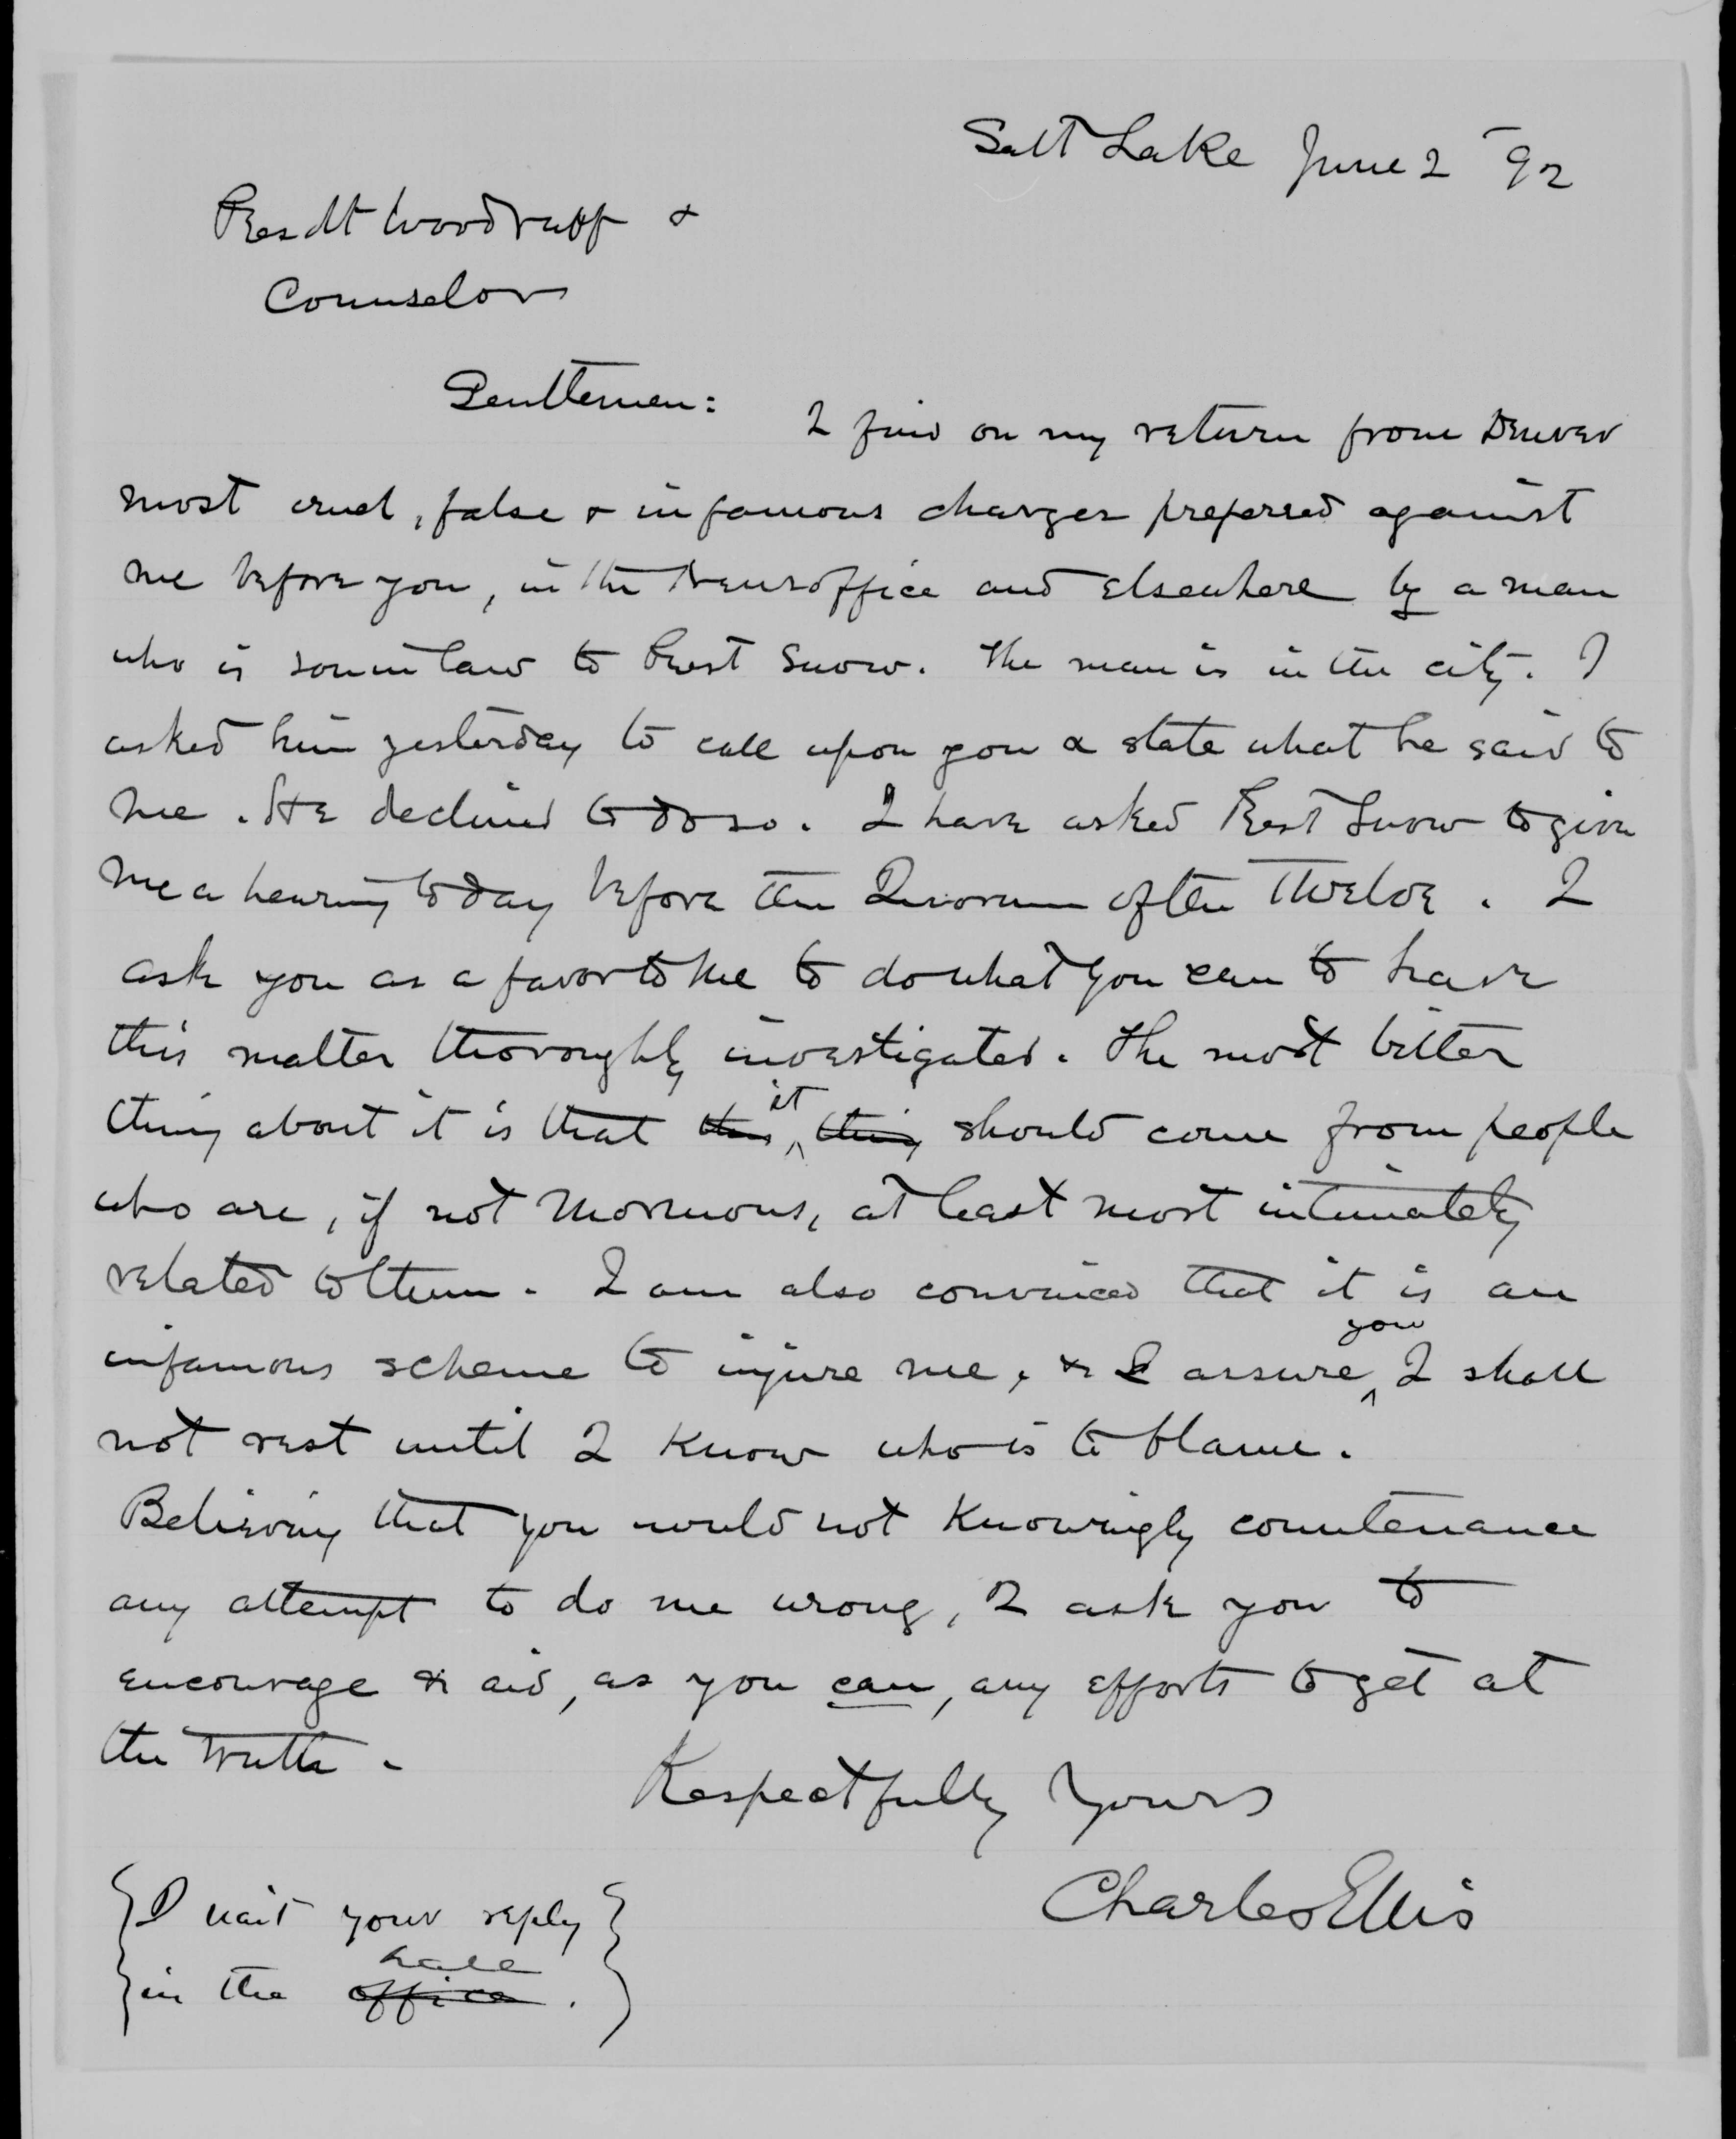 Salt Lake June 2 92
Presdt Woodruff &
Counselors
Gentlemen:
I find on my return from Denver
most cruel, false & infamous charges preferred against
me before you, in the News office and elsewhere by a man
who is son in law to Prest Snow. The man is in the city. I
asked him yesterday to call upon you & state what he said to
me. He declined to do so. I have asked Prest Snow to give
me a hearing today before the Quorum of the Twelve. I
ask you as a favor to me to do what you can to have
this matter thoroughly investigated. The most bitter
it
thing about it is that this thing should come from people
who are, if not Mormons, at least most intimately
related to them. I am also convinced that it is an
you
infamous scheme to injure me, & I assure ^ I shall
not rest until I know who is to blame.
Believing that you would not knowingly countenance
any attempt to do me wrong, I ask you to
encourage & aid, as you can, any efforts to get at
the truth.
Respectfully Yours
Charles Ellis
{I wait your reply}
hall
{in the office.}